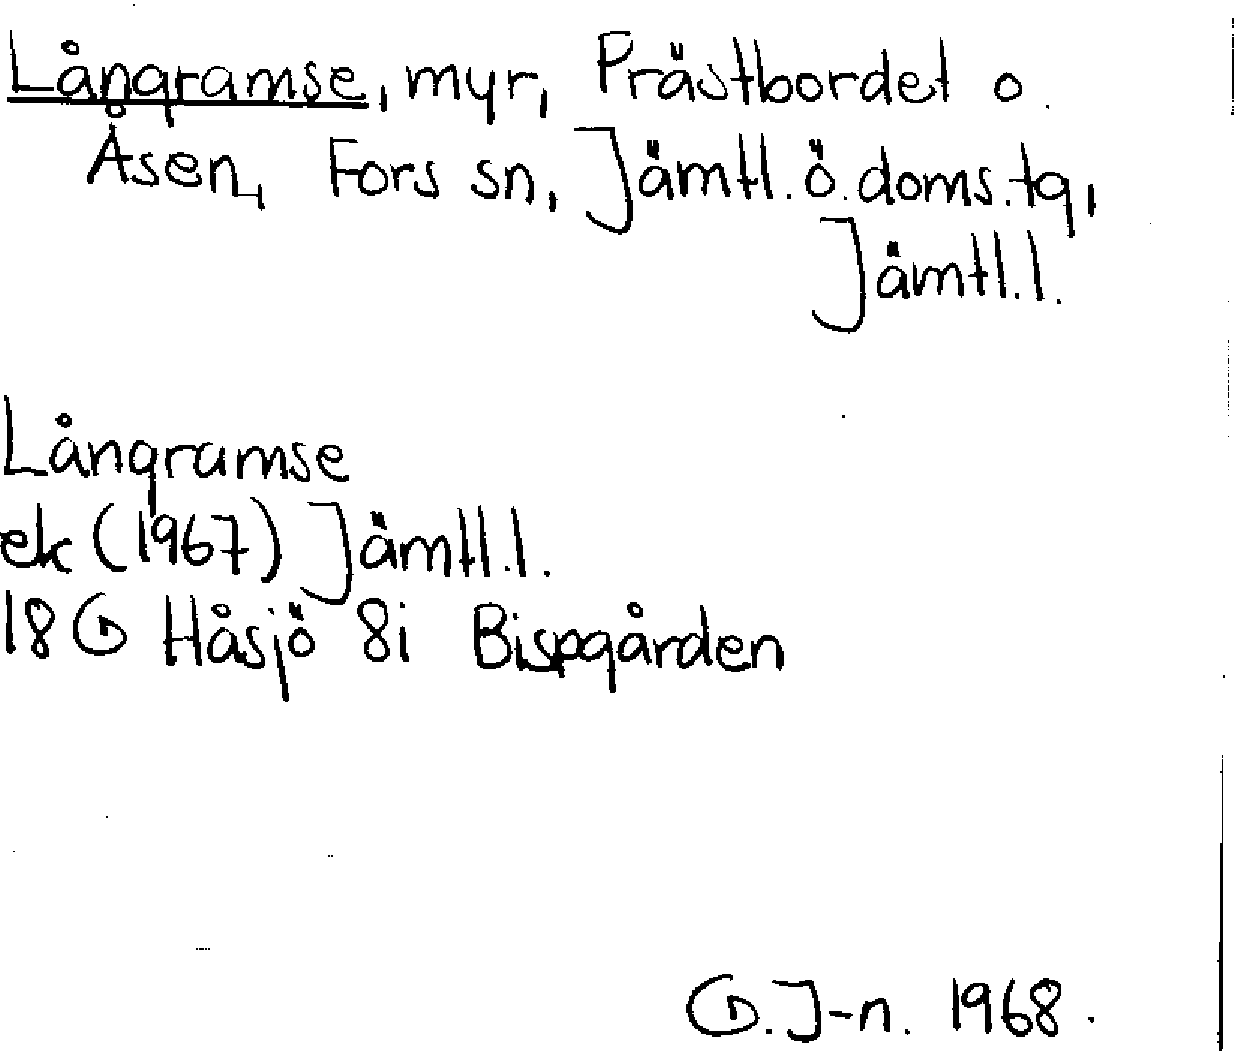 Långramse, myr, Prästbordet o.
Åsen, Fors sn, Jämtl. ö. doms. tg,
Jämtl. l.
Långramse
ek (1967) Jämtl. l.
18 G Håsjö 8i Bispgården
G. J-n. 1968.